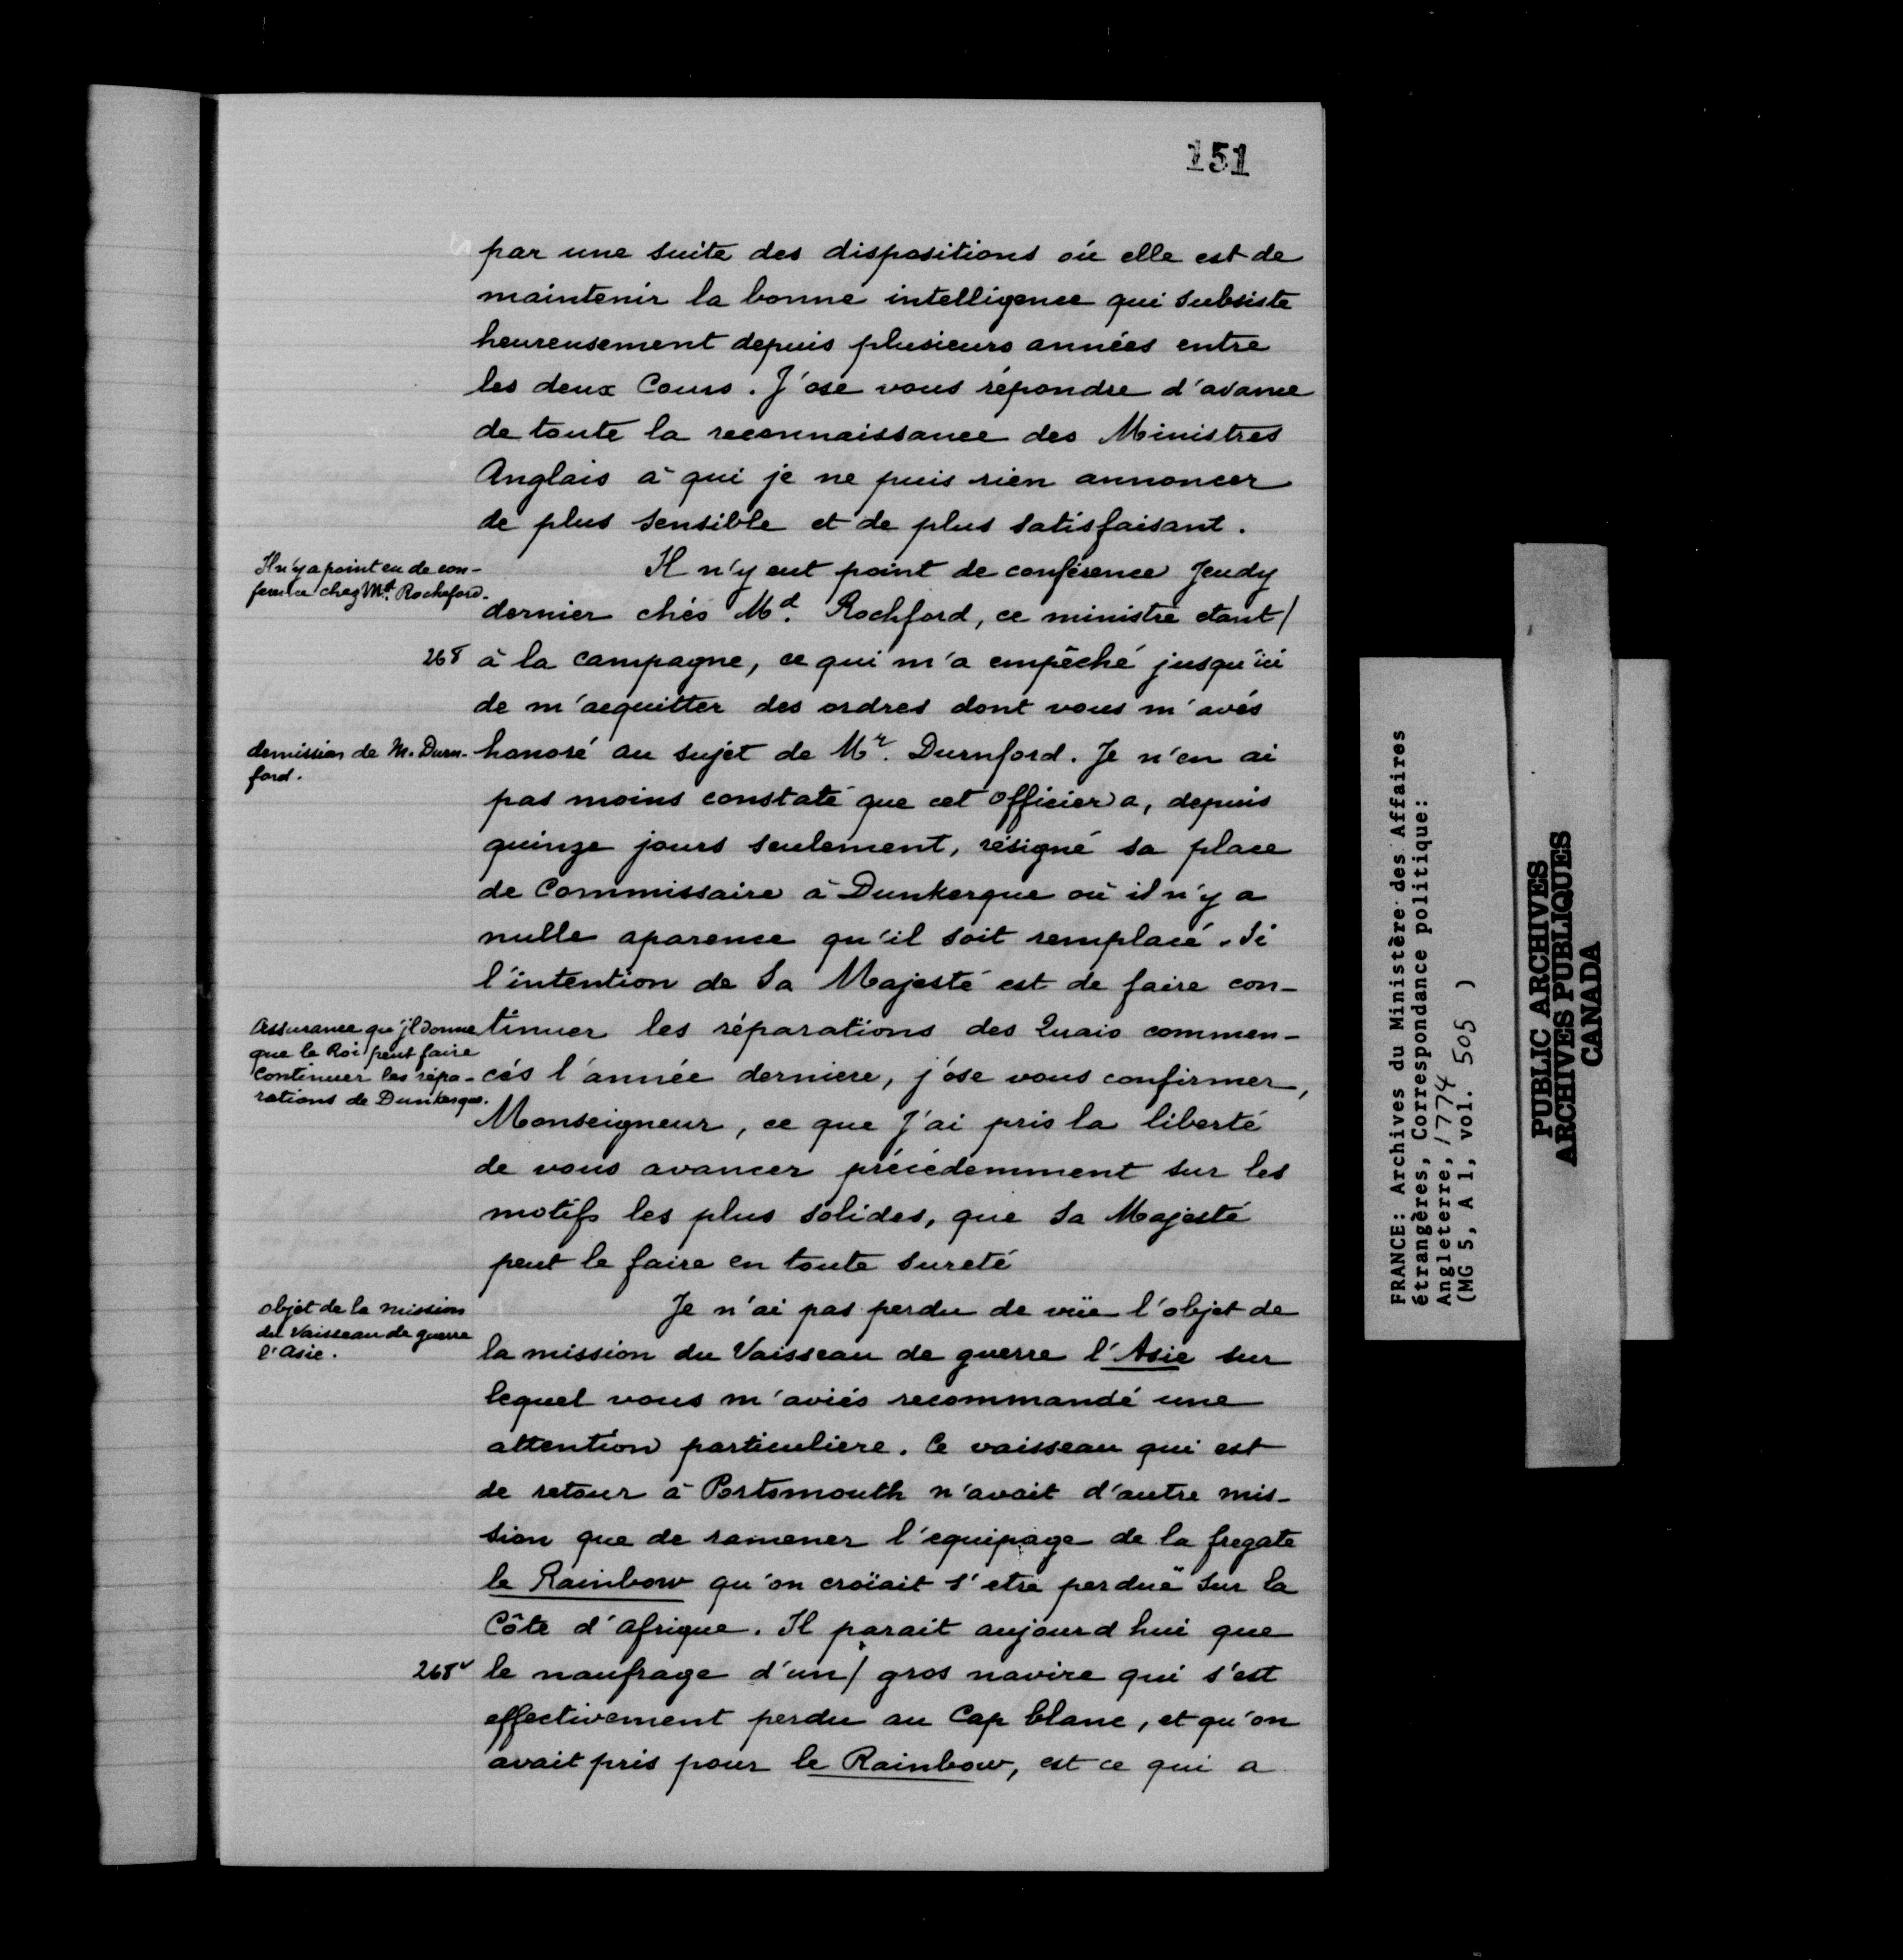 151
par une suite des dispositions où elle est de
maintenir la bonne intelligence qui subsiste
heureusement depuis plusieurs années entre
les deux Cours. J'ose vous répondre d'avance
de toute la reconnaissance des Ministres
Anglais à qui je ne puis rien annoncer
de plus sensible et de plus satisfaisant.
Il n'y a point eu de con-
ference chez Md. Rocheford.
Il n'y eut point de conférence Jeudy
dernier chés Md. Rochford, ce ministre etant/
268 à la campagne, ce qui m'a empêché jusqu'ici
de m'acquitter des ordres dont vous m'avés
demission de M. Durn-
ford.
honoré au sujet de Mr. Durnford. Je n'en ai
pas moins constaté que cet officier a, depuis
quinze jours seulement, résigné sa place
de Commissaire à Dunkerque où il n'y a
nulle aparence qu'il soit remplacé. Si
l'intention de Sa Majesté est de faire con-
Assurance qu'jl donne
que le Roi peut faire
continuer les répa-
rations de Dunkerque.
tinuer les réparations des Quais commen-
cés l'année derniere, j'ose vous confirmer,
Monseigneur, ce que J'ai pris la liberté
de vous avancer précédemment sur les
motifs les plus solides, que Sa Majesté
peut le faire en toute sureté
objet de la mission
du Vaisseau de guerre
l'Asie.
Je n'ai pas perdu de vüe l'objet de
la mission du Vaisseau de guerre l'Asie sur
lequel vous m'aviés recommandé une
attention particuliere. Ce vaisseau qui est
de retour à Portsmouth n'avait d'autre mis-
sion que de ramener l'equipage de la fregate
le Rainbow qu'on croïait s'etre perduë sur la
Côte d'afrique. Il parait aujourd hui que
268v le naufrage d'un/ gros navire qui s'est
effectivement perdu au Cap blanc, et qu'on
avait pris pour le Rainbow, est ce qui a
FRANCE: Archives du Ministère des Affaires
étrangères, Correspondance politique:
Angleterre, 1774
(MG 5, A 1, vol. 505 )
PUBLIC ARCHIVES
ARCHIVES PUBLIQUES
CANADA